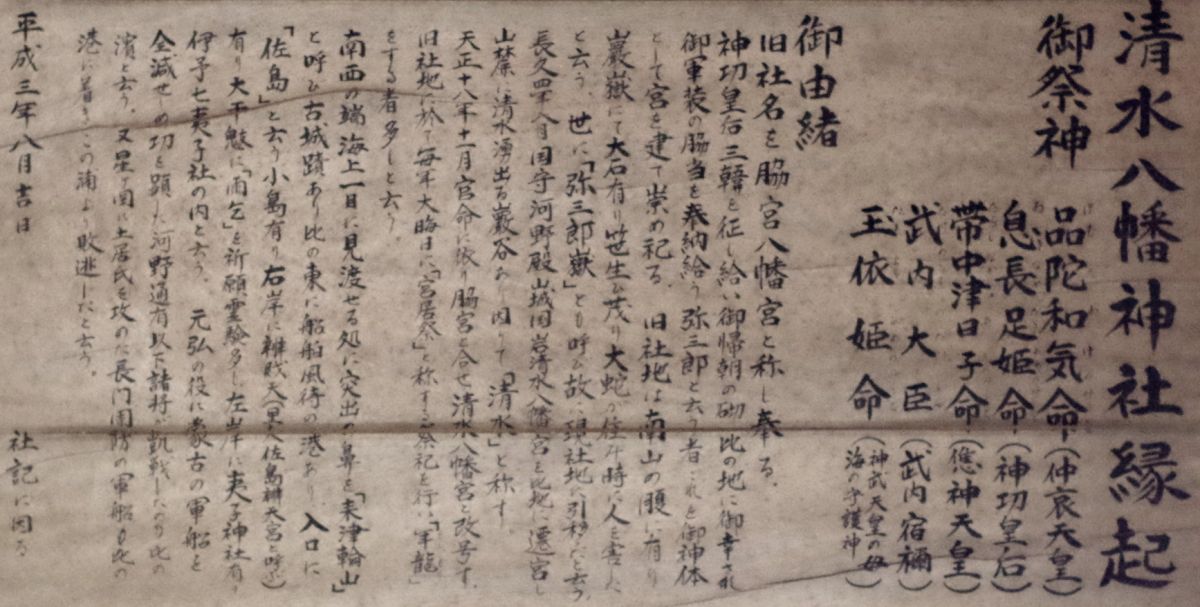 清水八幡神社縁起
御祭神
品陀和気命（仲哀天皇）
息長足姫命（神功皇后）
帯中津日子命（應神天皇）
武内大臣（武内宿禰）
玉依姫命（神武天皇の母 海の守護神）
御由緒
旧社名を脇宮八幡宮と称し奉る。
神功皇后三韓を征し給い御帰朝の砌比の地に御幸され
御軍装の脇当を奉納給う弥三郎と云う者これを御神体
として宮を建て崇め祀る。旧社地は南山の頂に有り
巖嶽にて大石有り笹生ひ茂り大蛇が住み時に人を害した
と云う。世に「弥三郎嶽」とも呼ひ故に現社地に引移したと云う。
長久四年八月国守河野殿山城国岩清水八幡宮を比地に遷宮し
山麓に清水湧出る巖谷あり因りて「清水」と称す。
天正十八年十一月官命に依り脇宮と合せ清水八幡宮と改号す。
旧社地に於て毎年大晦日に「宮居祭」と称する祭祀を行い「年籠」
をする者多しと云う。
南西の端海上一目に見渡せる処に突出の鼻を「来津輪山」
と呼ひ古城蹟あり比の東に船舶風待の港あり、入口に
「佐島」と云う小島有り右岸に辨戝天（里人佐島辨天宮と呼ぶ）
有り大干魃に「雨乞」を祈願霊験多し左岸に夷子神社有り
伊予七夷子社の内と云う。元弘の役に蒙古の軍船を
全滅せしめ功を顕した河野通有以下諸将が凱戦したのり比の
濱と云う。又星ヶ岡に土居氏を攻めた長門周防の軍船も比の
港に着きこの浦より敗逃したと云う。
平成三年八月吉日
社記に因る